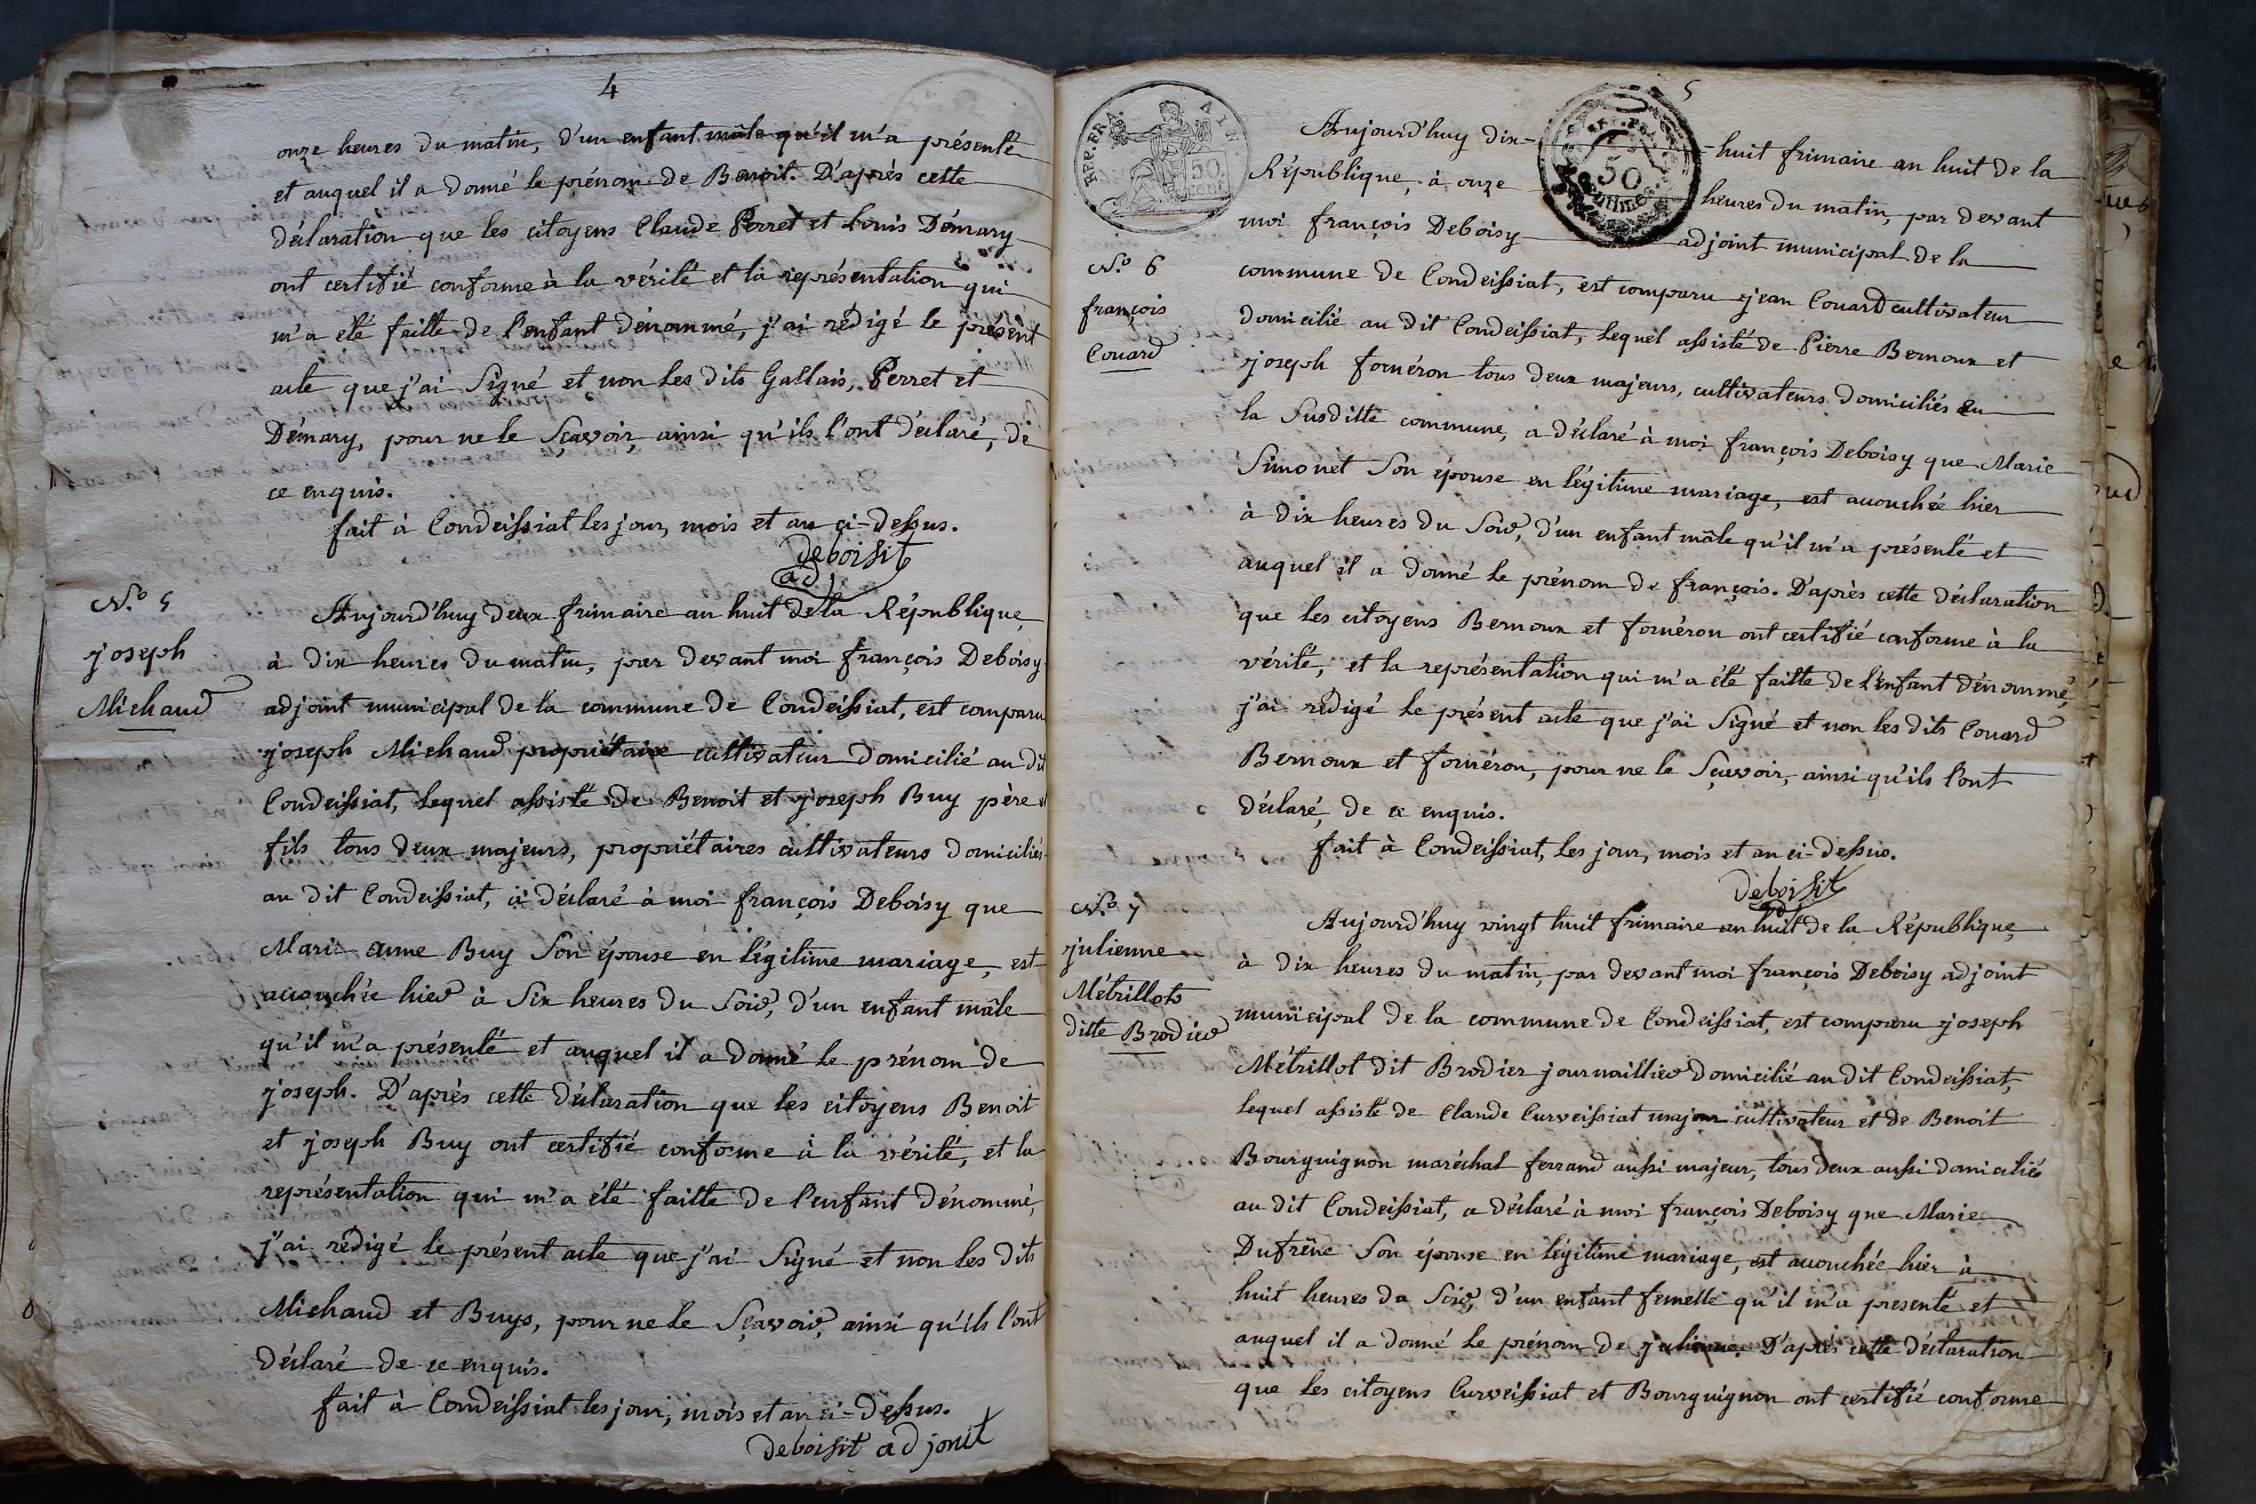 4
onze heures du matin, d'un enfant mâle qu'il m'a présenté
et auquel il a donné le prénom de Benoit. D'après cette
déclaration que les citoyens Claude Perret et Louis Démary
ont certifié conforme à la vérité et la représentation qui
m'a été faitte de l'enfant dénommé, j'ai rédigé le présent
acte que j'ai Signé et non les dits Gallais, Perret et
Démary, pour ne le Sçavoir, ainsi qu'ils l'ont déclaré, de
ce enquis.
fait à Condeissiat les jour, mois et an çi-dessus.
deboisit
ad
N.º 5
joseph
Michaud
Aujourd'huy deux frimaire an huit de la République,
à dix heures du matin, par devant moi françois Deboisy
adjoint municipal de la commune de Condeissiat, est comparu
joseph Michaud propriétaire cultivateur domicilié au dit
Condeissiat, lequel assisté de Benoit et joseph Buy père et
fils tous deux majeurs, propriétaires cultivateurs domiciliés
au dit Condeissiat, a déclaré à moi françois Deboisy que
Marie anne Buy Son épouse en légitime mariage, est
accouchée hier à Six heures du Soir, d'un enfant mâle
qu'il m'a présenté et auquel il a donné le prénom de
joseph. D'après cette déclaration que les citoyens Benoit
et joseph Buy ont certifié conforme à la vérité, et la
représentation qui m'a été faitte de l'enfant dénommé,
j'ai rédigé le présent acte que j'ai Signé et non les dits
Michaud et Buys, pour ne le Sçavoir, ainsi qu'ils l'ont
déclaré de ce enquis.
fait à Condeissiat les jour, mois et an ci-dessus.
deboisit adjoint
5
REP. FRA.
AIN.
50.
cent.
50
Aujourd'huy dix-huit frimaire an huit de la
République, à onze heures du matin, par devant
moi françois Deboisy adjoint municipal de la
N.º 6
françois
Couard
commune de Condeissiat, est comparu jean Couard cultivateur
domicilié au dit Condeissiat, lequel assisté de Pierre Bernoux et
joseph fornéron tous deux majeurs, cultivateurs domiciliés en
la Susditte commune, a déclaré à moi françois Deboisy que Marie
Simonet Son épouse en légitime mariage, est accouchée hier
à dix heures du Soir, d'un enfant mâle qu'il m'a présenté et
auquel il a donné le prénom de françois. D'après cette déclaration
que les citoyens Bernoux et fornéron ont certifié conforme à la
vérité, et la représentation qui m'a été faitte de l'enfant dénommé,
j'ai rédigé le présent acte que j'ai Signé et non les dits Couard
Bernoux et fornéron, pour ne le Sçavoir, ainsi qu'ils l'ont
déclaré, de ce enquis.
fait à Condeissiat, les jour, mois et an ci-dessus.
deboisit
N.º 7
julienne
Métrillot
ditte Brodier
Aujourd'huy vingt huit frimaire an huit de la République,
à dix heures du matin, par devant moi françois Deboisy adjoint
municipal de la commune de Condeissiat, est comparu joseph
Métrillot dit Brodier journaillier domicilié au dit Condeissiat,
lequel assisté de Claude Curveissiat majeur cultivateur et de Benoit
Bourguignon maréchal ferrand aussi majeur, tous deux aussi domiciliés
au dit Condeissiat, a déclaré à moi françois Deboisy que Marie
Dufrêne Son épouse en légitime mariage, est accouchée hier à
huit heures du Soir, d'un enfant femelle qu'il m'a presenté et
auquel il a donné le prénom de julienne. D'après cette déclaration
que les citoyens Curveissiat et Bourguignon ont certifié conforme